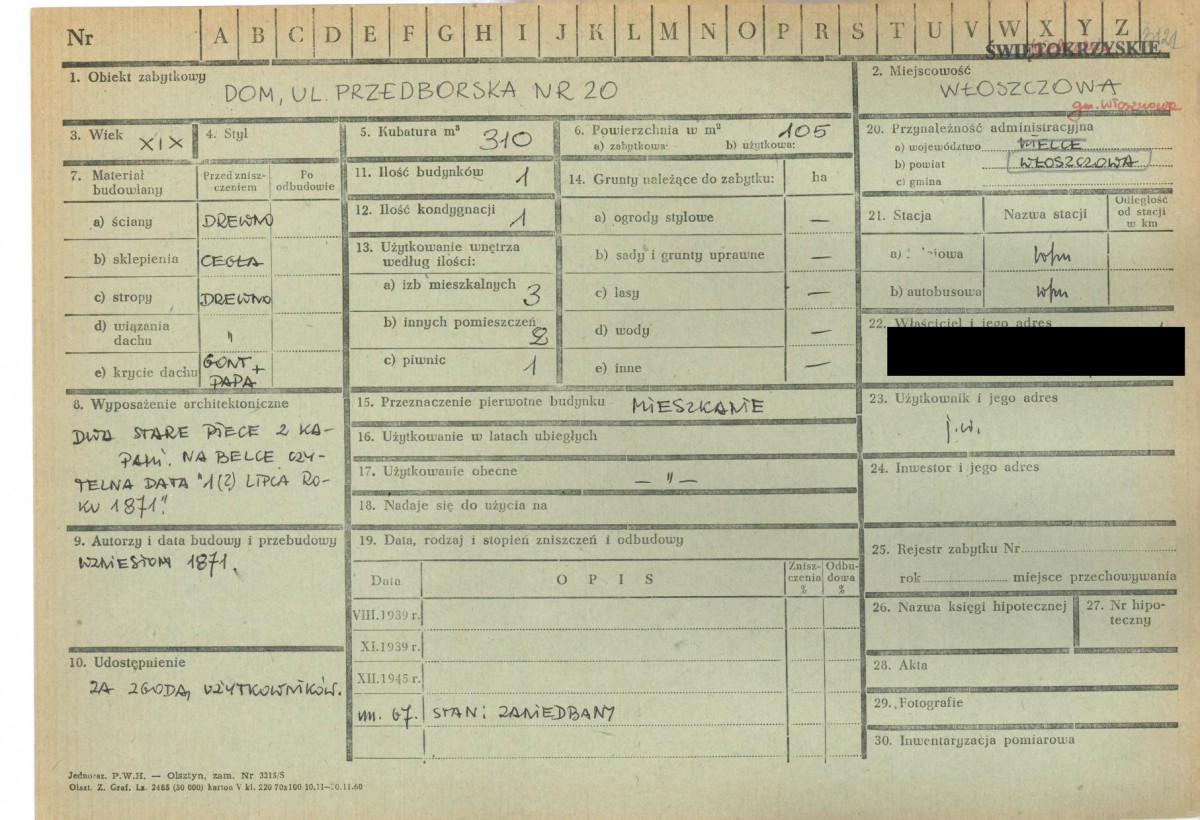 Nr A B C D E F G H I J K L M N O P R S T U V W X Y Z
ŚWIĘTOKRZYSKIE
1. Obiekt zabytkowy
DOM, UL. PRZEDBORSKA NR 20
2. Miejscowość
WŁOSZCZOWA
gm. Włoszczowa
3. Wiek XIX
4. Styl
5. Kubatura m³ 310
6. Powierzchnia w m² 105
a) zabytkowa: b) użytkowa:
20. Przynależność administracyjna
a) województwo KIELCE
b) powiat WŁOSZCZOWA
c) gmina
7. Materiał budowlany
Przed znisz-
czeniem
Po
odbudowie
a) ściany DREWNO
b) sklepienia CEGŁA
c) stropy DREWNO
d) wiązania
dachu "
e) krycie dachu GONT +
PAPA
11. Ilość budynków 1
12. Ilość kondygnacji 1
13. Użytkowanie wnętrza
według ilości:
a) izb mieszkalnych 3
b) innych pomieszczeń 2
c) piwnic 1
14. Grunty należące do zabytku: ha
a) ogrody stylowe —
b) sady i grunty uprawne —
c) lasy —
d) wody —
e) inne —
21. Stacja Nazwa stacji
Odległość
od stacji
w km
a)
b) autobusowa
22. Właściciel i jego adres
8. Wyposażenie architektoniczne
DWA STARE PIECE Z KA-
PAMI. NA BELCE CZY-
TELNA DATA "1(?) LIPCA RO-
KU 1871".
15. Przeznaczenie pierwotne budynku MIESZKANIE
16. Użytkowanie w latach ubiegłych
17. Użytkowanie obecne — " —
18. Nadaje się do użycia na
23. Użytkownik i jego adres
j.w.
24. Inwestor i jego adres
9. Autorzy i data budowy i przebudowy
WZNIESIONY 1871.
19. Data, rodzaj i stopień zniszczeń i odbudowy
Data OPIS
Znisz-
czenia
%
Odbu-
dowa
%
VIII.1939 r.
XI.1939 r.
XII.1945 r.
67. STAN: ZANIEDBANY
25. Rejestr zabytku Nr
rok miejsce przechowywania
26. Nazwa księgi hipotecznej
27. Nr hipo-
teczny
10. Udostępnienie
ZA ZGODĄ UŻYTKOWNIKÓW.
28. Akta
29. Fotografie
30. Inwentaryzacja pomiarowa
Jednoraz. P.W.H. — Olsztyn, zam. Nr 3215/S
Olszt. Z. Graf. Lz. 2485 (30 000) karton V kl. 220 70x100